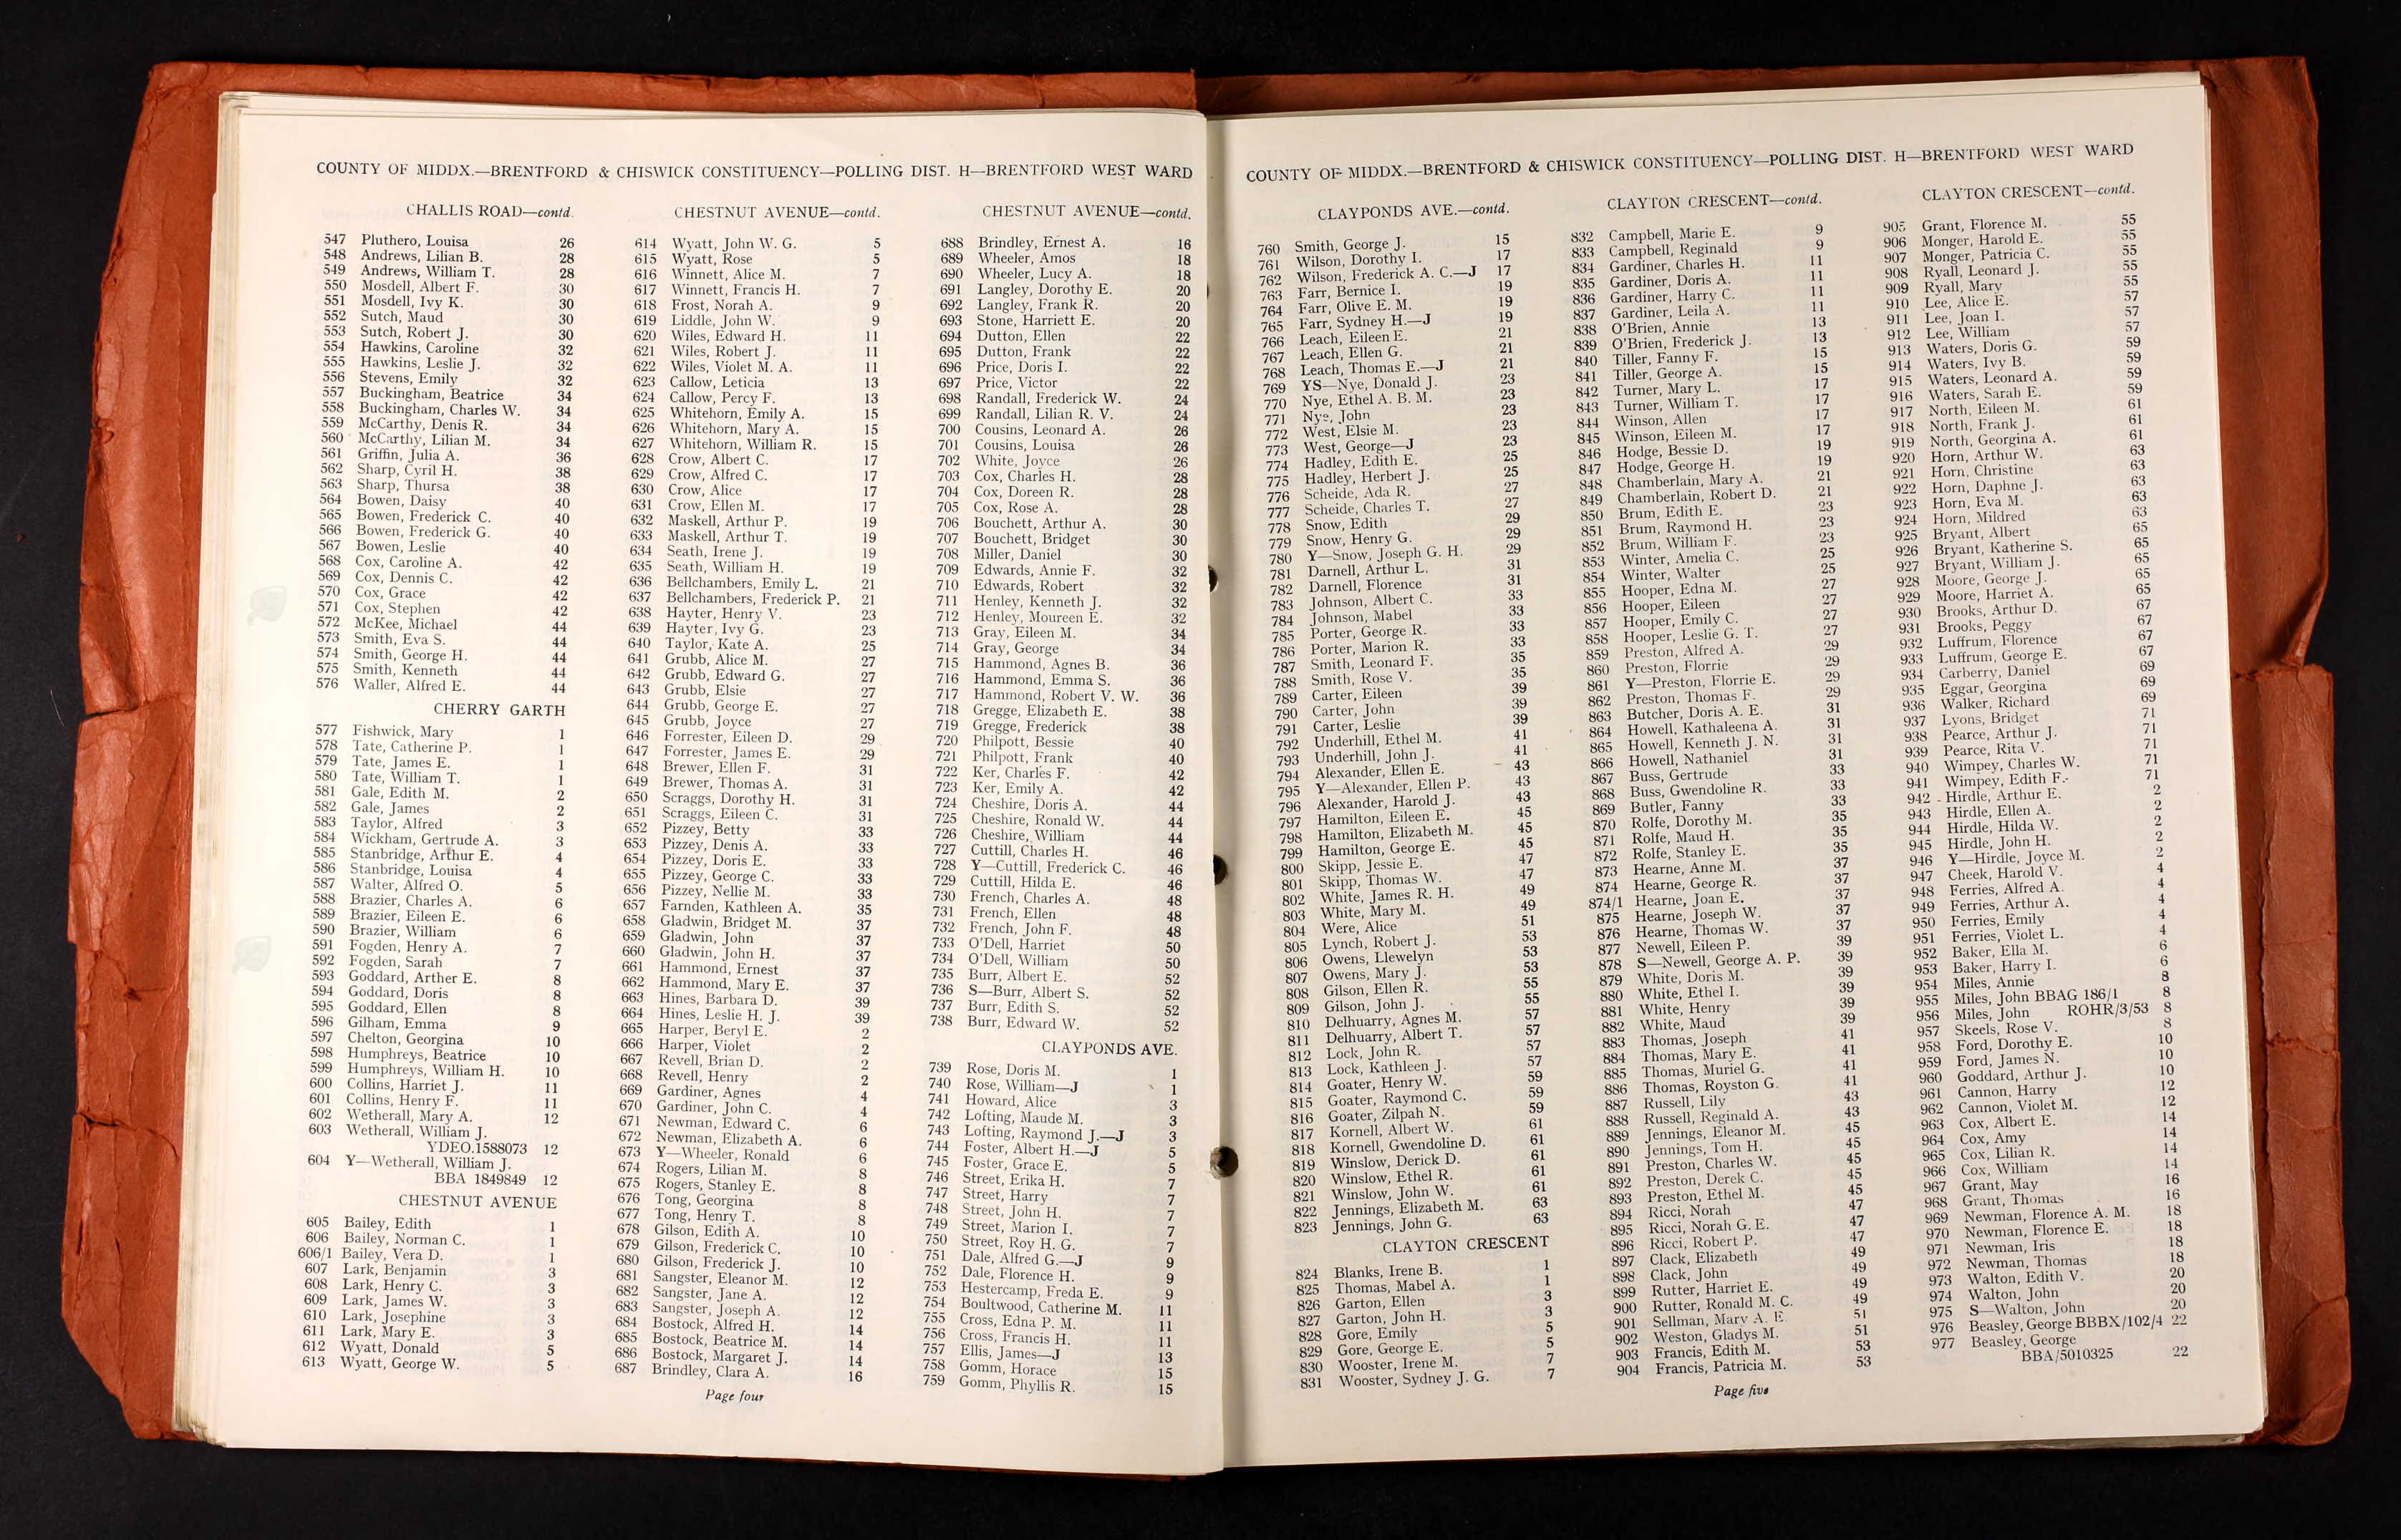 COUNTY OF MIDDX.—BRENTFORD & CHISWICK CONSTITUENCY—POLLING DIST. H—BRENTFORD WEST WARD
CHALLIS ROAD—contd.
547 Pluthero, Louisa 26
548 Andrews, Lilian B. 28
549 Andrews, William T. 28
550 Mosdell, Albert F. 30
551 Mosdell, Ivy K. 30
552 Sutch, Maud 30
553 Sutch, Robert J. 30
554 Hawkins, Caroline 32
555 Hawkins, Leslie J. 32
556 Stevens, Emily 32
557 Buckingham, Beatrice 34
558 Buckingham, Charles W. 34
559 McCarthy, Denis R. 34
560 McCarthy, Lilian M. 34
561 Griffin, Julia A. 36
562 Sharp, Cyril H. 38
563 Sharp, Thursa 38
564 Bowen, Daisy 40
565 Bowen, Frederick C. 40
566 Bowen, Frederick G. 40
567 Bowen, Leslie 40
568 Cox, Caroline A. 42
569 Cox, Dennis C. 42
570 Cox, Grace 42
571 Cox, Stephen 42
572 McKee, Michael 44
573 Smith, Eva S. 44
574 Smith, George H. 44
575 Smith, Kenneth 44
576 Waller, Alfred E. 44
CHERRY GARTH
577 Fishwick, Mary 1
578 Tate, Catherine P. 1
579 Tate, James E. 1
580 Tate, William T. 1
581 Gale, Edith M. 2
582 Gale, James 2
583 Taylor, Alfred 3
584 Wickham, Gertrude A. 3
585 Stanbridge, Arthur E. 4
586 Stanbridge, Louisa 4
587 Walter, Alfred O. 5
588 Brazier, Charles A. 6
589 Brazier, Eileen E. 6
590 Brazier, William 6
591 Fogden, Henry A. 7
592 Fogden, Sarah 7
593 Goddard, Arther E. 8
594 Goddard, Doris 8
595 Goddard, Ellen 8
596 Gilham, Emma 9
597 Chelton, Georgina 10
598 Humphreys, Beatrice 10
599 Humphreys, William H. 10
600 Collins, Harriet J. 11
601 Collins, Henry F. 11
602 Wetherall, Mary A. 12
603 Wetherall, William J.
YDEO.1588073 12
604 Y—Wetherall, William J.
BBA 1849849 12
CHESTNUT AVENUE
605 Bailey, Edith 1
606 Bailey, Norman C. 1
606/1 Bailey, Vera D. 1
607 Lark, Benjamin 3
608 Lark, Henry C. 3
609 Lark, James W. 3
610 Lark, Josephine 3
611 Lark, Mary E. 3
612 Wyatt, Donald 5
613 Wyatt, George W. 5
CHESTNUT AVENUE—contd.
614 Wyatt, John W. G. 5
615 Wyatt, Rose 5
616 Winnett, Alice M. 7
617 Winnett, Francis H. 7
618 Frost, Norah A. 9
619 Liddle, John W. 9
620 Wiles, Edward H. 11
621 Wiles, Robert J. 11
622 Wiles, Violet M. A. 11
623 Callow, Leticia 13
624 Callow, Percy F. 13
625 Whitehorn, Emily A. 15
626 Whitehorn, Mary A. 15
627 Whitehorn, William R. 15
628 Crow, Albert C. 17
629 Crow, Alfred C. 17
630 Crow, Alice 17
631 Crow, Ellen M. 17
632 Maskell, Arthur P. 19
633 Maskell, Arthur T. 19
634 Seath, Irene J. 19
635 Seath, William H. 19
636 Bellchambers, Emily L. 21
637 Bellchambers, Frederick P. 21
638 Hayter, Henry V. 23
639 Hayter, Ivy G. 23
640 Taylor, Kate A. 25
641 Grubb, Alice M. 27
642 Grubb, Edward G. 27
643 Grubb, Elsie 27
644 Grubb, George E. 27
645 Grubb, Joyce 27
646 Forrester, Eileen D. 29
647 Forrester, James E. 29
648 Brewer, Ellen F. 31
649 Brewer, Thomas A. 31
650 Scraggs, Dorothy H. 31
651 Scraggs, Eileen C. 31
652 Pizzey, Betty 33
653 Pizzey, Denis A. 33
654 Pizzey, Doris E. 33
655 Pizzey, George C. 33
656 Pizzey, Nellie M. 33
657 Farnden, Kathleen A. 35
658 Gladwin, Bridget M. 37
659 Gladwin, John 37
660 Gladwin, John H. 37
661 Hammond, Ernest 37
662 Hammond, Mary E. 37
663 Hines, Barbara D. 39
664 Hines, Leslie H. J. 39
665 Harper, Beryl E. 2
666 Harper, Violet 2
667 Revell, Brian D. 2
668 Revell, Henry 2
669 Gardiner, Agnes 4
670 Gardiner, John C. 4
671 Newman, Edward C. 6
672 Newman, Elizabeth A. 6
673 Y—Wheeler, Ronald 6
674 Rogers, Lilian M. 8
675 Rogers, Stanley E. 8
676 Tong, Georgina 8
677 Tong, Henry T. 8
678 Gilson, Edith A. 10
679 Gilson, Frederick C. 10
680 Gilson, Frederick J. 10
681 Sangster, Eleanor M. 12
682 Sangster, Jane A. 12
683 Sangster, Joseph A. 12
684 Bostock, Alfred H. 14
685 Bostock, Beatrice M. 14
686 Bostock, Margaret J. 14
687 Brindley, Clara A. 16
CHESTNUT AVENUE—contd.
688 Brindley, Ernest A. 16
689 Wheeler, Amos 18
690 Wheeler, Lucy A. 18
691 Langley, Dorothy E. 20
692 Langley, Frank R. 20
693 Stone, Harriett E. 20
694 Dutton, Ellen 22
695 Dutton, Frank 22
696 Price, Doris I. 22
697 Price, Victor 22
698 Randall, Frederick W. 24
699 Randall, Lilian R. V. 24
700 Cousins, Leonard A. 26
701 Cousins, Louisa 26
702 White, Joyce 26
703 Cox, Charles H. 28
704 Cox, Doreen R. 28
705 Cox, Rose A. 28
706 Bouchett, Arthur A. 30
707 Bouchett, Bridget 30
708 Miller, Daniel 30
709 Edwards, Annie F. 32
710 Edwards, Robert 32
711 Henley, Kenneth J. 32
712 Henley, Moureen E. 32
713 Gray, Eileen M. 34
714 Gray, George 34
715 Hammond, Agnes B. 36
716 Hammond, Emma S. 36
717 Hammond, Robert V. W. 36
718 Gregge, Elizabeth E. 38
719 Gregge, Frederick 38
720 Philpott, Bessie 40
721 Philpott, Frank 40
722 Ker, Charles F. 42
723 Ker, Emily A. 42
724 Cheshire, Doris A. 44
725 Cheshire, Ronald W. 44
726 Cheshire, William 44
727 Cuttill, Charles H. 46
728 Y—Cuttill, Frederick C. 46
729 Cuttill, Hilda E. 46
730 French, Charles A. 48
731 French, Ellen 48
732 French, John F. 48
733 O'Dell, Harriet 50
734 O'Dell, William 50
735 Burr, Albert E. 52
736 S—Burr, Albert S. 52
737 Burr, Edith S. 52
738 Burr, Edward W. 52
CLAYPONDS AVE.
739 Rose, Doris M. 1
740 Rose, William—J 1
741 Howard, Alice 3
742 Lofting, Maude M. 3
743 Lofting, Raymond J.—J 3
744 Foster, Albert H.—J 5
745 Foster, Grace E. 5
746 Street, Erika H. 7
747 Street, Harry 7
748 Street, John H. 7
749 Street, Marion I. 7
750 Street, Roy H. G. 7
751 Dale, Alfred G.—J 9
752 Dale, Florence H. 9
753 Hestercamp, Freda E. 9
754 Boultwood, Catherine M. 11
755 Cross, Edna P. M. 11
756 Cross, Francis H. 11
757 Ellis, James—J 13
758 Gomm, Horace 15
759 Gomm, Phyllis R. 15
Page four
COUNTY OF MIDDX.—BRENTFORD & CHISWICK CONSTITUENCY—POLLING DIST. H—BRENTFORD WEST WARD
CLAYPONDS AVE.—contd.
760 Smith, George J. 15
761 Wilson, Dorothy I. 17
762 Wilson, Frederick A. C.—J 17
763 Farr, Bernice I. 19
764 Farr, Olive E. M. 19
765 Farr, Sydney H.—J 19
766 Leach, Eileen E. 21
767 Leach, Ellen G. 21
768 Leach, Thomas E.—J 21
769 YS—Nye, Donald J. 23
770 Nye, Ethel A. B. M. 23
771 Nye, John 23
772 West, Elsie M. 23
773 West, George—J 23
774 Hadley, Edith E. 25
775 Hadley, Herbert J. 25
776 Scheide, Ada R. 27
777 Scheide, Charles T. 27
778 Snow, Edith 29
779 Snow, Henry G. 29
780 Y—Snow, Joseph G. H. 29
781 Darnell, Arthur L. 31
782 Darnell, Florence 31
783 Johnson, Albert C. 33
784 Johnson, Mabel 33
785 Porter, George R. 33
786 Porter, Marion R. 33
787 Smith, Leonard F. 35
788 Smith, Rose V. 35
789 Carter, Eileen 39
790 Carter, John 39
791 Carter, Leslie 39
792 Underhill, Ethel M. 41
793 Underhill, John J. 41
794 Alexander, Ellen E. 43
795 Y—Alexander, Ellen P. 43
796 Alexander, Harold J. 43
797 Hamilton, Eileen E. 45
798 Hamilton, Elizabeth M. 45
799 Hamilton, George E. 45
800 Skipp, Jessie E. 47
801 Skipp, Thomas W. 47
802 White, James R. H. 49
803 White, Mary M. 49
804 Were, Alice 51
805 Lynch, Robert J. 53
806 Owens, Llewelyn 53
807 Owens, Mary J. 53
808 Gilson, Ellen R. 55
809 Gilson, John J. 55
810 Delhuarry, Agnes M. 57
811 Delhuarry, Albert T. 57
812 Lock, John R. 57
813 Lock, Kathleen J. 57
814 Goater, Henry W. 59
815 Goater, Raymond C. 59
816 Goater, Zilpah N. 59
817 Kornell, Albert W. 61
818 Kornell, Gwendoline D. 61
819 Winslow, Derick D. 61
820 Winslow, Ethel R. 61
821 Winslow, John W. 61
822 Jennings, Elizabeth M. 63
823 Jennings, John G. 63
CLAYTON CRESCENT
824 Blanks, Irene B. 1
825 Thomas, Mabel A. 1
826 Garton, Ellen 3
827 Garton, John H. 3
828 Gore, Emily 5
829 Gore, George E. 5
830 Wooster, Irene M. 7
831 Wooster, Sydney J. G. 7
CLAYTON CRESCENT—contd.
832 Campbell, Marie E. 9
833 Campbell, Reginald 9
834 Gardiner, Charles H. 11
835 Gardiner, Doris A. 11
836 Gardiner, Harry C. 11
837 Gardiner, Leila A. 11
838 O'Brien, Annie 13
839 O'Brien, Frederick J. 13
840 Tiller, Fanny F. 15
841 Tiller, George A. 15
842 Turner, Mary L. 17
843 Turner, William T. 17
844 Winson, Allen 17
845 Winson, Eileen M. 17
846 Hodge, Bessie D. 19
847 Hodge, George H. 19
848 Chamberlain, Mary A. 21
849 Chamberlain, Robert D. 21
850 Brum, Edith E. 23
851 Brum, Raymond H. 23
852 Brum, William F. 23
853 Winter, Amelia C. 25
854 Winter, Walter 25
855 Hooper, Edna M. 27
856 Hooper, Eileen 27
857 Hooper, Emily C. 27
858 Hooper, Leslie G. T. 27
859 Preston, Alfred A. 29
860 Preston, Florrie 29
861 Y—Preston, Florrie E. 29
862 Preston, Thomas F. 29
863 Butcher, Doris A. E. 31
864 Howell, Kathaleena A. 31
865 Howell, Kenneth J. N. 31
866 Howell, Nathaniel 31
867 Buss, Gertrude 33
868 Buss, Gwendoline R. 33
869 Butler, Fanny 33
870 Rolfe, Dorothy M. 35
871 Rolfe, Maud H. 35
872 Rolfe, Stanley E. 35
873 Hearne, Anne M. 37
874 Hearne, George R. 37
874/1 Hearne, Joan E. 37
875 Hearne, Joseph W. 37
876 Hearne, Thomas W. 37
877 Newell, Eileen P. 39
878 S—Newell, George A. P. 39
879 White, Doris M. 39
880 White, Ethel I. 39
881 White, Henry 39
882 White, Maud 39
883 Thomas, Joseph 41
884 Thomas, Mary E. 41
885 Thomas, Muriel G. 41
886 Thomas, Royston G. 41
887 Russell, Lily 43
888 Russell, Reginald A. 43
889 Jennings, Eleanor M. 45
890 Jennings, Tom H. 45
891 Preston, Charles W. 45
892 Preston, Derek C. 45
893 Preston, Ethel M. 45
894 Ricci, Norah 47
895 Ricci, Norah G. E. 47
896 Ricci, Robert P. 47
897 Clack, Elizabeth 49
898 Clack, John 49
899 Rutter, Harriet E. 49
900 Rutter, Ronald M. C. 49
901 Sellman, Mary A. E. 51
902 Weston, Gladys M. 51
903 Francis, Edith M. 53
904 Francis, Patricia M. 53
CLAYTON CRESCENT—contd.
905 Grant, Florence M. 55
906 Monger, Harold E. 55
907 Monger, Patricia C. 55
908 Ryall, Leonard J. 55
909 Ryall, Mary 55
910 Lee, Alice E. 57
911 Lee, Joan I. 57
912 Lee, William 57
913 Waters, Doris G. 59
914 Waters, Ivy B. 59
915 Waters, Leonard A. 59
916 Waters, Sarah E. 59
917 North, Eileen M. 61
918 North, Frank J. 61
919 North, Georgina A. 61
920 Horn, Arthur W. 63
921 Horn, Christine 63
922 Horn, Daphne J. 63
923 Horn, Eva M. 63
924 Horn, Mildred 63
925 Bryant, Albert 65
926 Bryant, Katherine S. 65
927 Bryant, William J. 65
928 Moore, George J. 65
929 Moore, Harriet A. 65
930 Brooks, Arthur D. 67
931 Brooks, Peggy 67
932 Luffrum, Florence 67
933 Luffrum, George E. 67
934 Carberry, Daniel 69
935 Eggar, Georgina 69
936 Walker, Richard 69
937 Lyons, Bridget 71
938 Pearce, Arthur J. 71
939 Pearce, Rita V. 71
940 Wimpey, Charles W. 71
941 Wimpey, Edith F. 71
942 Hirdle, Arthur E. 2
943 Hirdle, Ellen A. 2
944 Hirdle, Hilda W. 2
945 Hirdle, John H. 2
946 Y—Hirdle, Joyce M. 2
947 Cheek, Harold V. 4
948 Ferries, Alfred A. 4
949 Ferries, Arthur A. 4
950 Ferries, Emily 4
951 Ferries, Violet L. 4
952 Baker, Ella M. 6
953 Baker, Harry I. 6
954 Miles, Annie 8
955 Miles, John BBAG 186/1 8
956 Miles, John ROHR/3/53 8
957 Skeels, Rose V. 8
958 Ford, Dorothy E. 10
959 Ford, James N. 10
960 Goddard, Arthur J. 10
961 Cannon, Harry 12
962 Cannon, Violet M. 12
963 Cox, Albert E. 14
964 Cox, Amy 14
965 Cox, Lilian R. 14
966 Cox, William 14
967 Grant, May 16
968 Grant, Thomas 16
969 Newman, Florence A. M. 18
970 Newman, Florence E. 18
971 Newman, Iris 18
972 Newman, Thomas 18
973 Walton, Edith V. 20
974 Walton, John 20
975 S—Walton, John 20
976 Beasley, George BBBX/102/4 22
977 Beasley, George
BBA/5010325 22
Page five